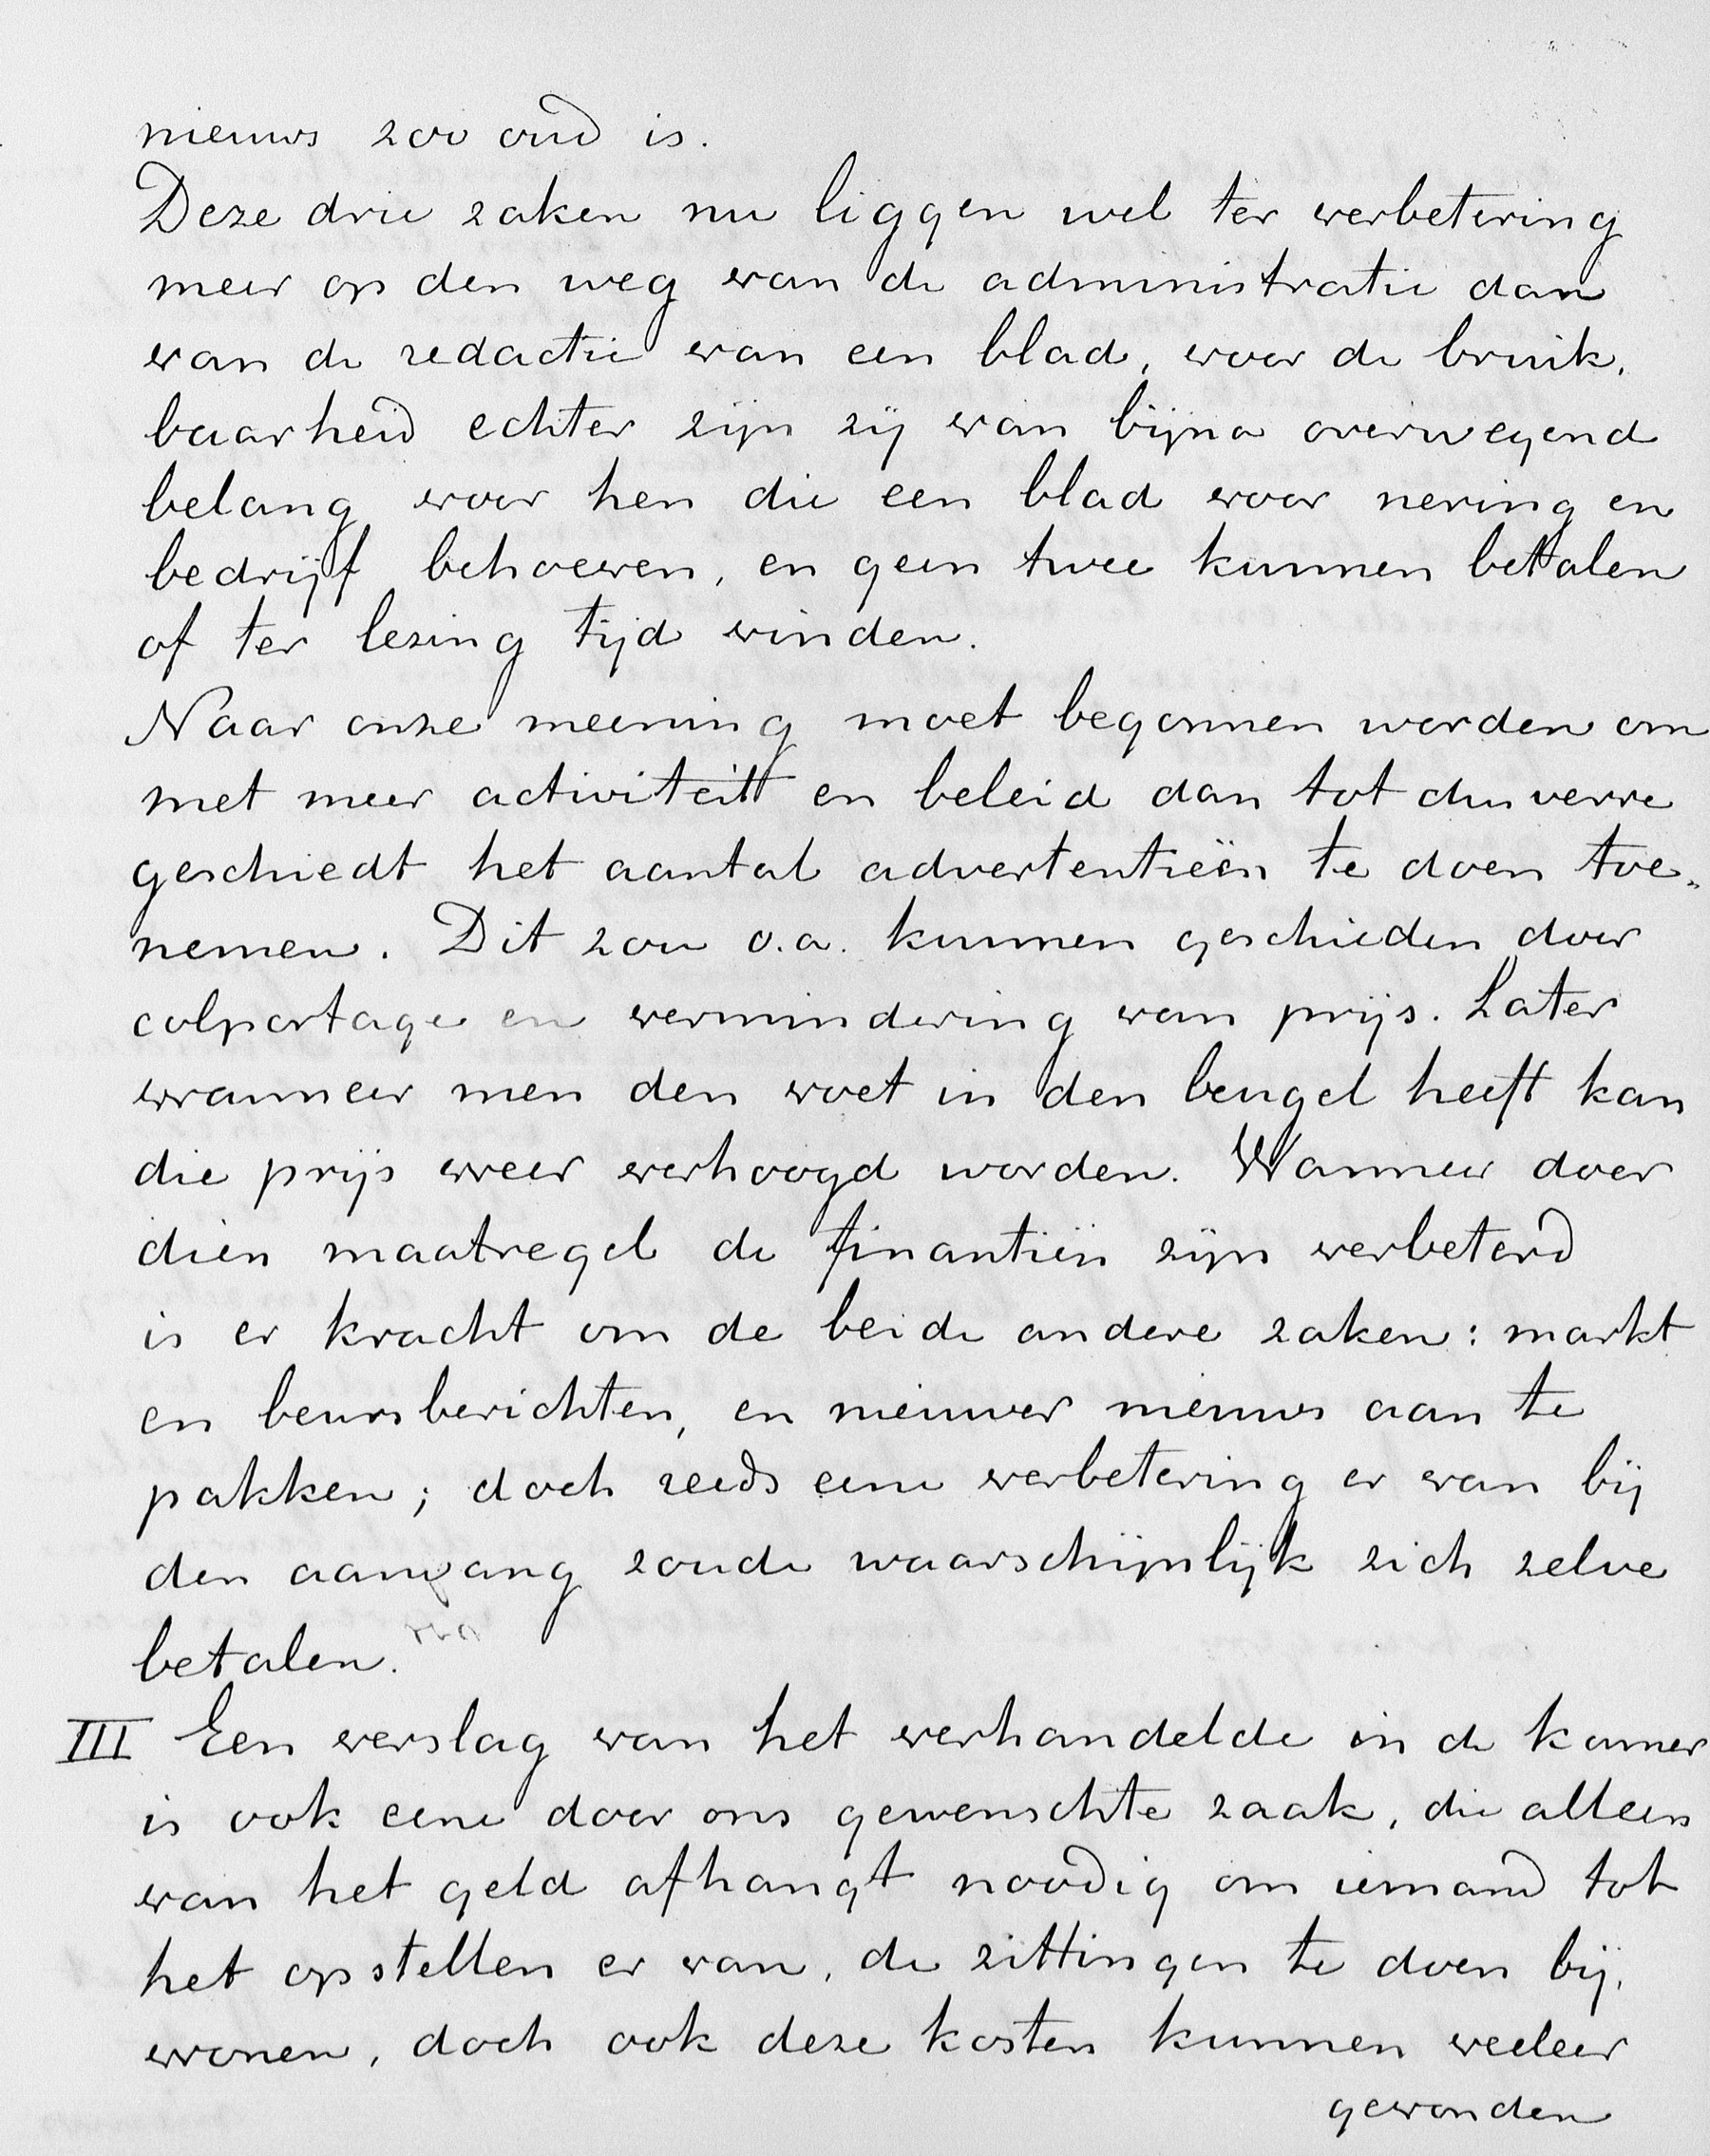 nieuws zoo oud is.
Deze drie zaken nu liggen wel ter verbetering
meer op den weg van de administratie dan
van de redactie van een blad, voor de bruik,
baarheid echter zijn zij van bijna overwegend
belang voor hen die een blad voor nering en
bedrijf behoeven, en geen twee kunnen betalen
of ter lezing tijd vinden.
Naar onze meening moet begonnen worden om
met meer activiteit en beleid dan tot dusverre
geschiedt het aantal advertentieën te doen toe„
nemen. Dit zou o.a. kunnen geschieden door
colportage en vermindering van prijs. Later
wanneer men den voet in den beugel heeft kan
die prijs weer verhoogd worden. Wanneer door
dien maatregel de finantiën zijn verbeterd
is er kracht om de beide andere zaken: markt
en beursberichten, en nieuwer nieuws aan te
pakken; doch reeds eene verbetering er van bij
den aanvang zoude waarschijnlijk zich zelve
betalen.
III Een verslag van het verhandelde in de kamer
is ook eene door ons gewenschte zaak, die alleen
van het geld afhangt noodig om iemand tot
het opstellen er van, de zittingen te doen bij,
wonen, doch ook deze kosten kunnen weder
gevonden